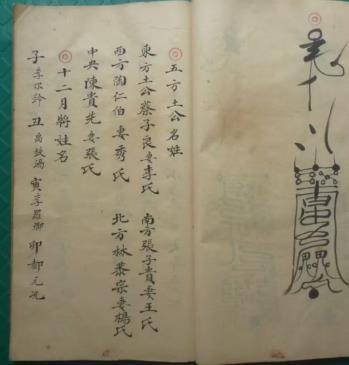 五方土公名姓
東方土公蔡子良妻李氏 南方張子貴妻王氏
西方陶仁伯妻秀氏 北方林恭宗妻楊氏
中央陳貴先妻張氏
十二月將姓名
子 李 丑 寅 李羅卿 卯 郝元